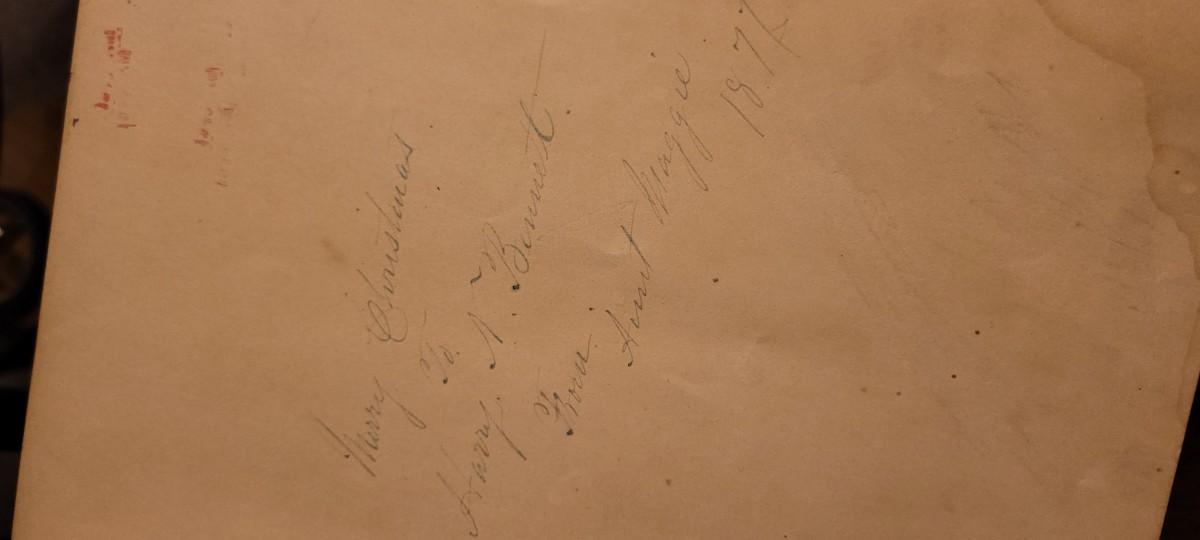 Merry Christmas.
To.
Harry. N. Bennett.
From.
Aunt Maggie.